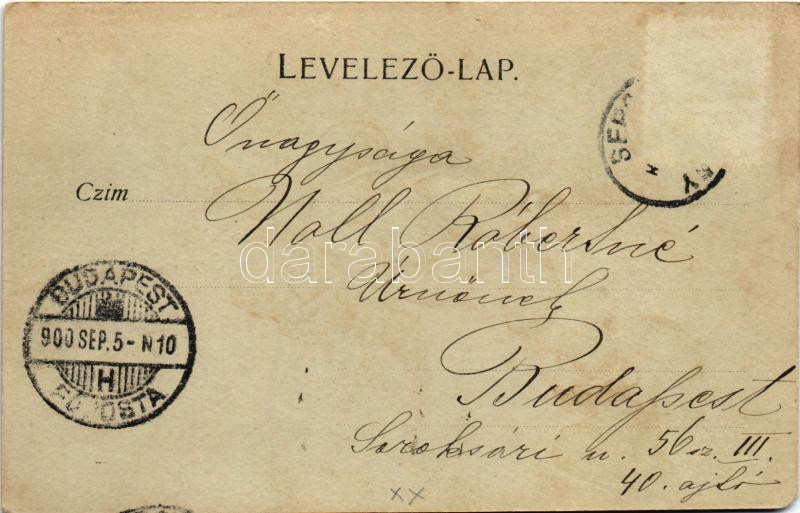 LEVELEZŐ-LAP.
Őnagysága
Czim
Noll Róbertné
Úrnőnek
Budapest
Soroksári u. 56 sz. III.
40. ajtó
BUDAPEST
900 SEP. 5 - N10
H
FŐPOSTA
SEPS
Y
darabanth
xx